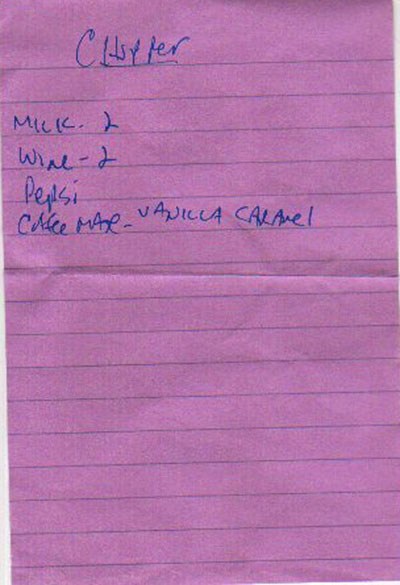 CHopper
MILK - 2
WINE - 2
Pepsi
Coffee MATE - VANILLA CARAMEL